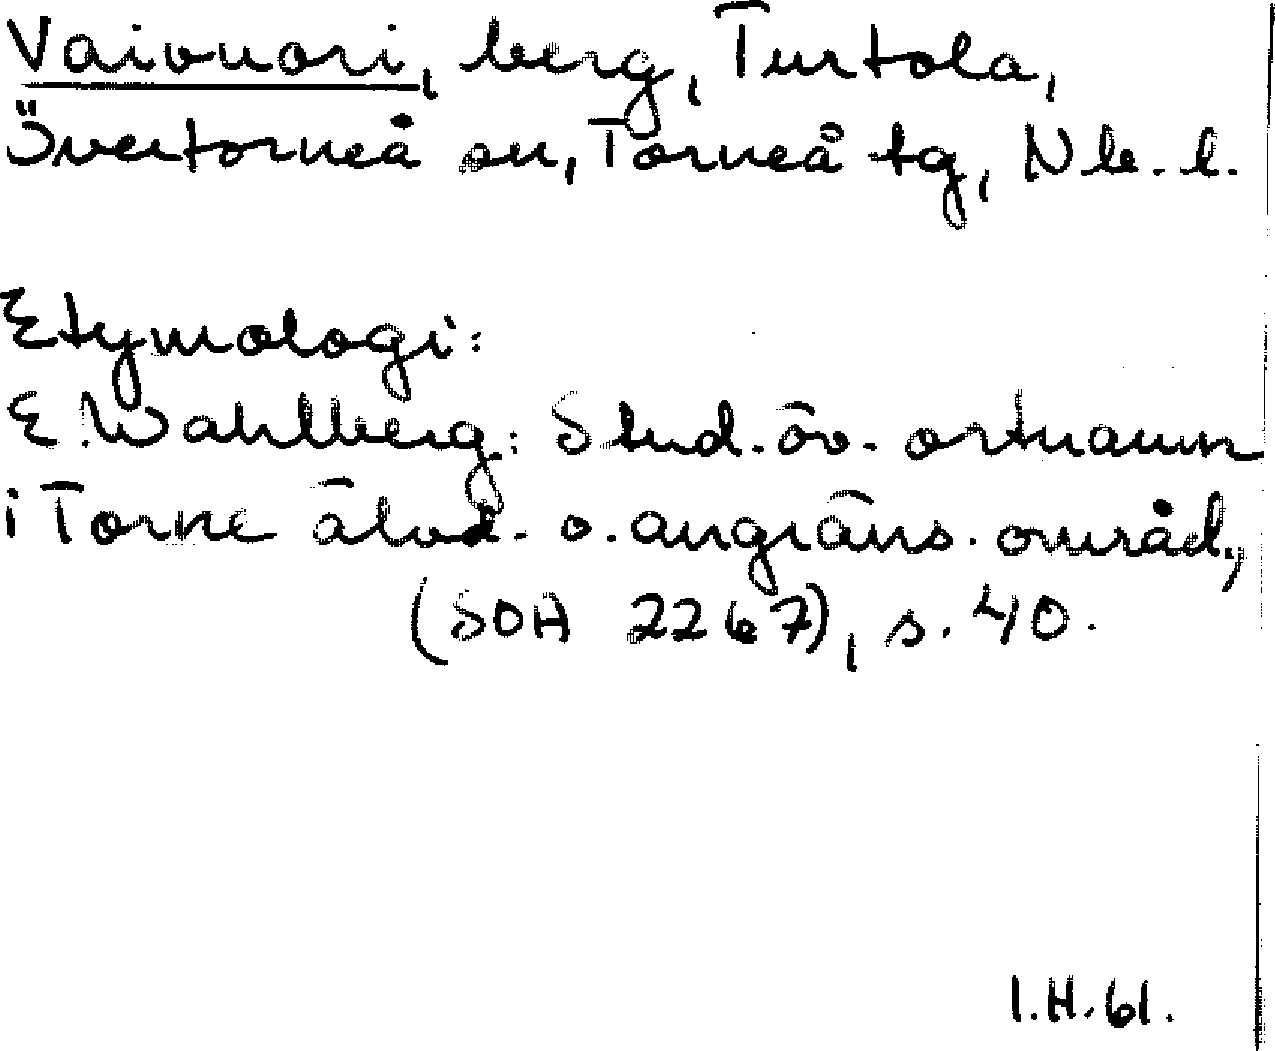 Vaivuori, berg, Turtola,
Övertorneå sn, Torneå tg, Nb. l.
Etymologi:
E. Wahlberg: Stud. öv. ortnamn
i Torne älvd. o. angräns. områd.,
(SOA 2267), s. 40.
I.H. 61.